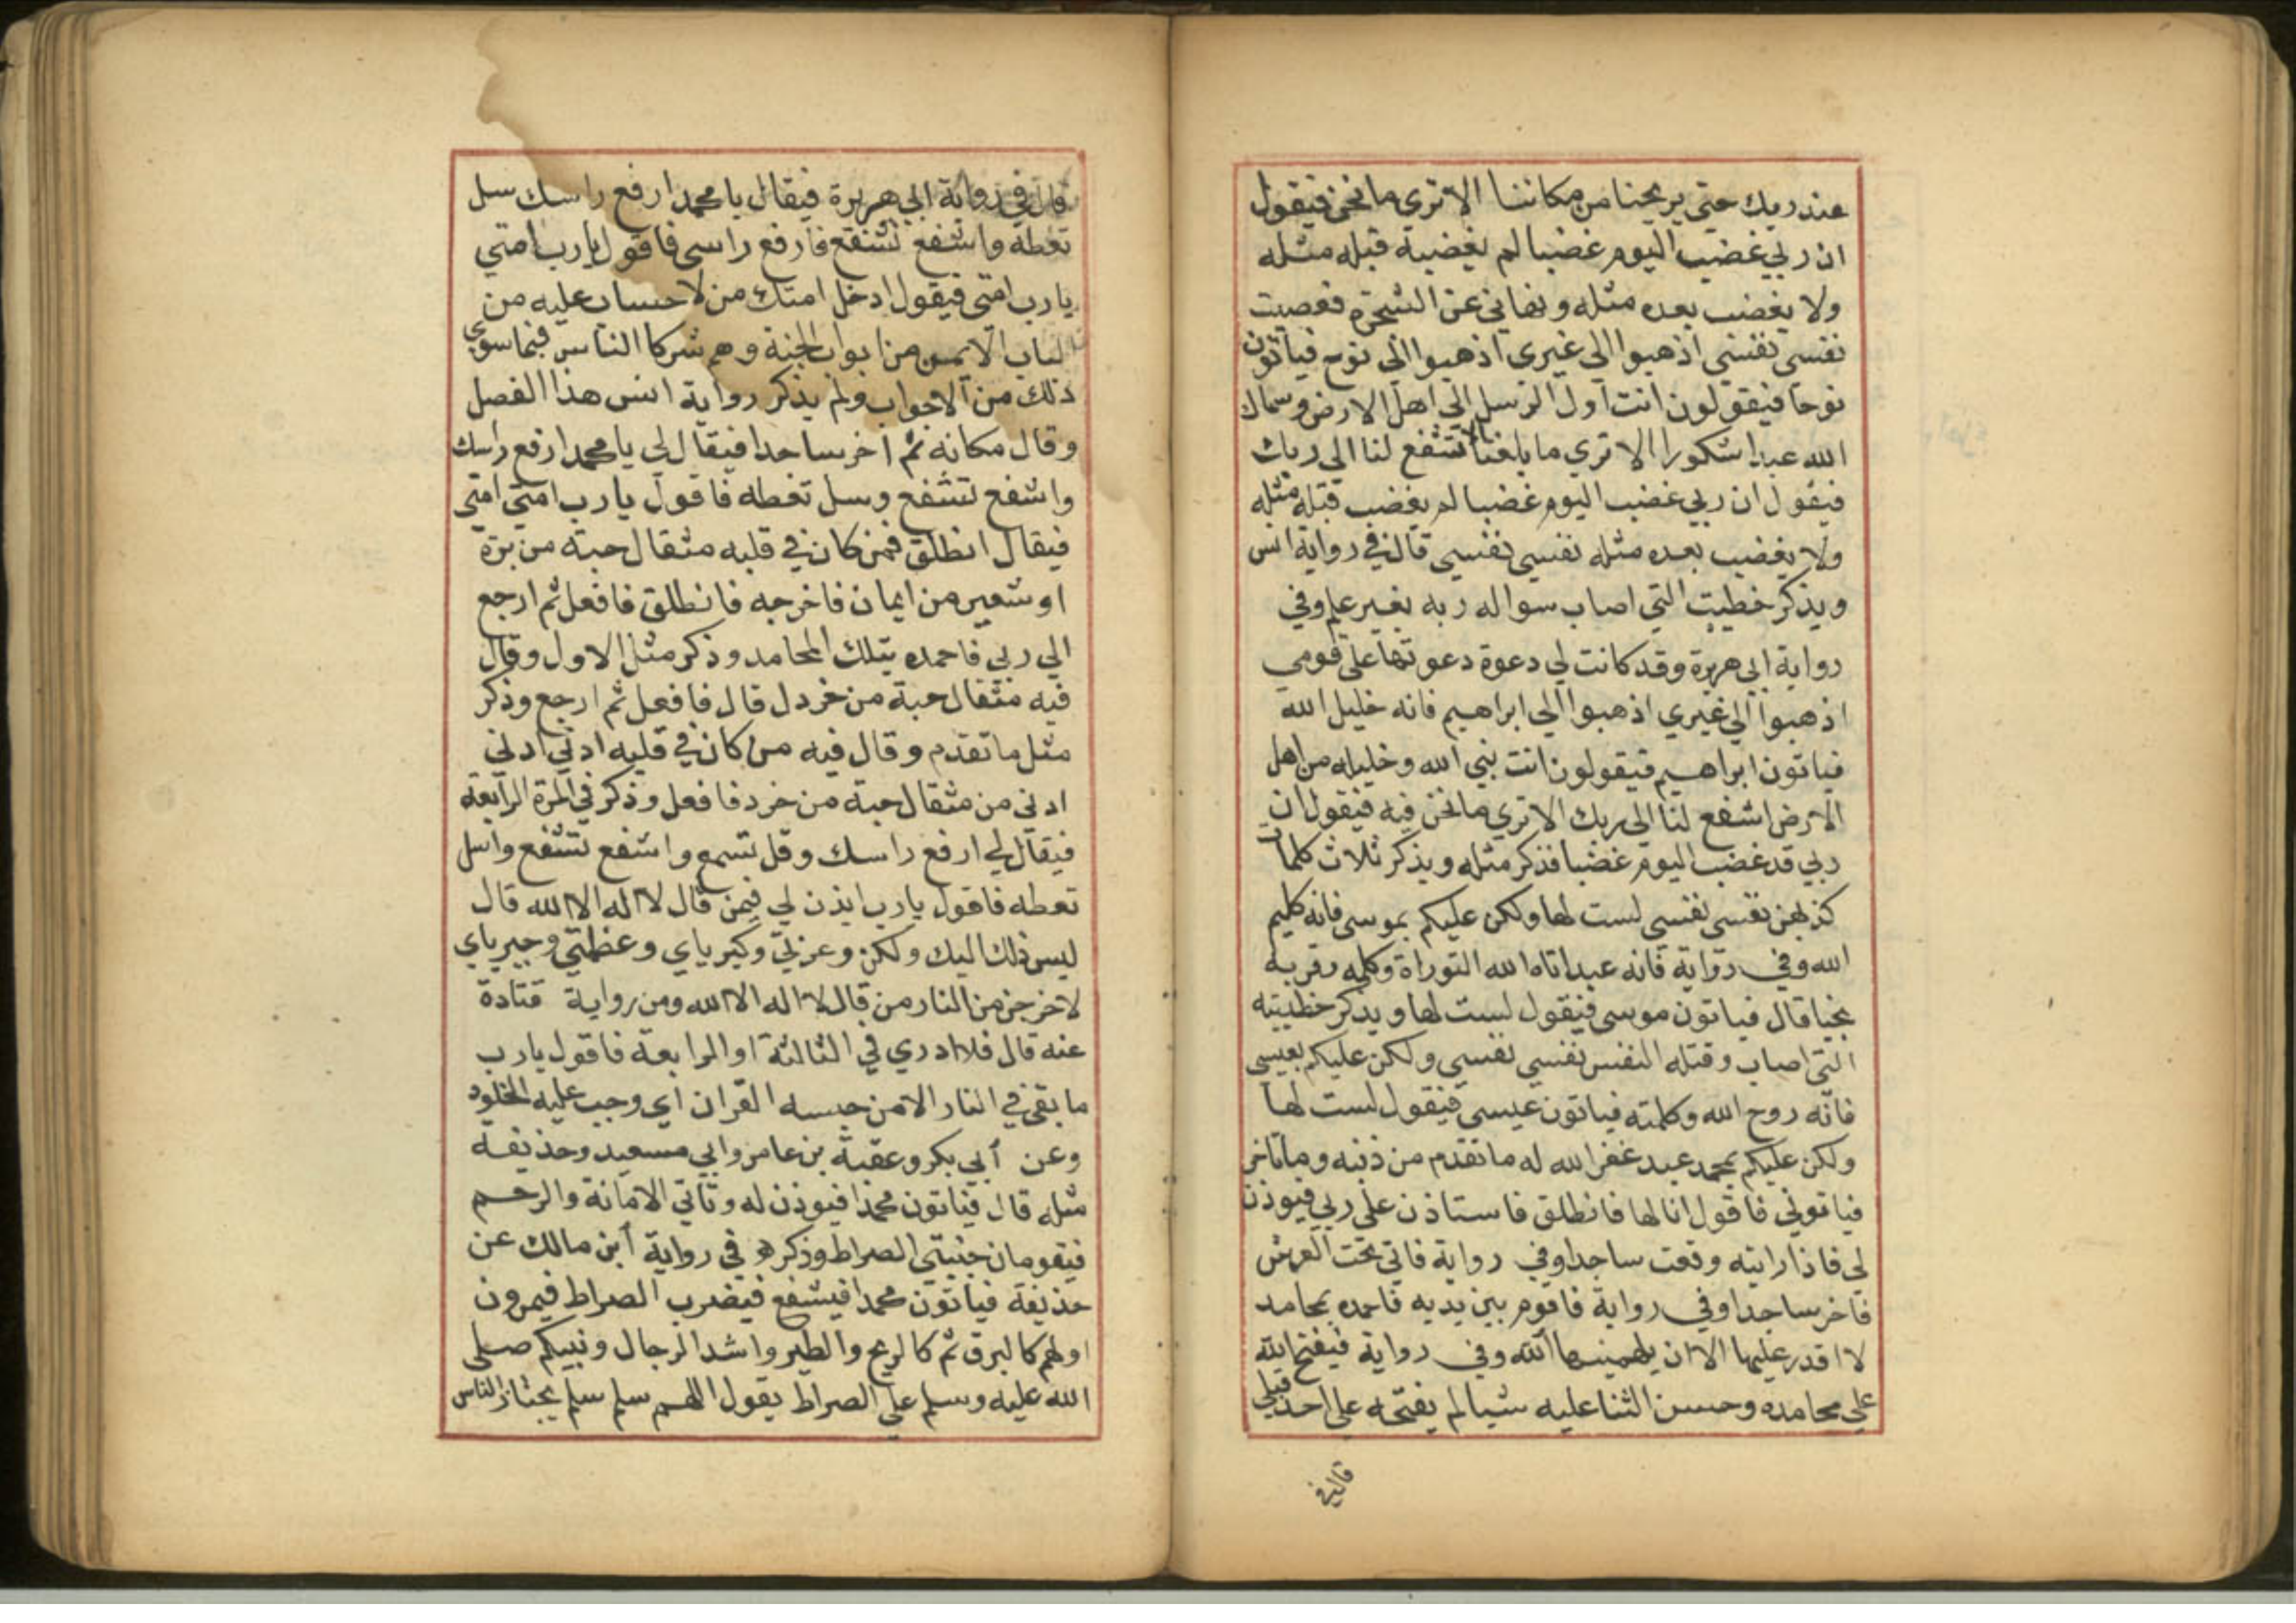 عند ربك حتى يريحنا من مكاننا الا تري ما نحن فيقول
ان ربي غضب اليوم غضبا لم يغضبه قبله مثله
ولا يغضب بعده مثله ونهاني عن الشجرة فعصيت
نفسي نفسي اذهبوا الي غيري اذهبوا الي نوح فياتون
نوحا فيقولون انت اول الرسل الي اهل الارض وسماك
الله عبدا شكورا الا تري ما بلغنا الا تشفع لنا الي ربك
فيقول ان ربي غضب اليوم غضبا لم يغضب قبله مثله
ولا يغضب بعده مثله نفسي نفسي قال في رواية انس
ويذكر خطيته التي اصاب سواله ربه بغير علم وفي
رواية ابي هريرة وقد كانت لي دعوة دعوتها على قومي
اذهبوا الي غيري اذهبوا الي ابراهيم فانه خليل الله
فياتون ابراهيم فيقولون انت نبي الله وخليله من اهل
الارض اشفع لنا الي ربك الا تري ما نحن فيه فيقول ان
ربي قد غضب اليوم غضبا فذكر مثله ويذكر ثلاث كلمات
كذبهن نفسي نفسي لست لها ولكن عليكم بموسى فانه كليم
الله وفي رواية فانه عبد اتاه الله التوراة وكلمه وقربه
نجيا قال فياتون موسى فيقول لست لها ويذكر خطيئته
التي اصاب وقتله النفس نفسي نفسي ولكن عليكم بعيسى
فانه روح الله وكلمته فياتون عيسى فيقول لست لها
ولكن عليكم بمحمد عبد غفر الله له ما تقدم من ذنبه وما تاخر
فياتوني فاقول انا لها فانطلق فاستاذن علي ربي فيوذن
لي فاذا رايته وقعت ساجدا وفي رواية فاتي تحت العرش
فاخر ساجدا وفي رواية فاقوم بين يديه فاحمده بمحامد
لا اقدر عليها الا ان يلهمنيها الله وفي رواية فيفتح الله
علي محامده وحسن الثنا عليه شيا لم يفتحه على احد قبلي
قال في
قال في رواية ابي هريرة فيقال يا محمد ارفع راسك سل
تعطه واشفع تشفع فارفع راسي فاقول يا رب امتي
يا رب امتي فيقول ادخل امتك من لا حساب عليه من
الباب الايمن من ابواب الجنة وهم شركا الناس فيما سوي
ذلك من الابواب ولم يذكر رواية انس هذا الفصل
وقال مكانه ثم اخر ساجدا فيقال لي يا محمد ارفع راسك
واشفع تشفع وسل تعطه فاقول يا رب امتي امتي
فيقال انطلق فمن كان في قلبه مثقال حبة من برة
او شعير من ايمان فاخرجه فانطلق فافعل ثم ارجع
الي ربي فاحمده بتلك المحامد وذكر مثل الاول وقال
فيه مثقال حبة من خردل قال فافعل ثم ارجع وذكر
مثل ما تقدم وقال فيه من كان في قلبه ادني ادني
ادني من مثقال حبة من خرد فافعل وذكر في المرة الرابعة
فيقال لي ارفع راسك وقل تسمع واشفع تشفع واسل
تعطه فاقول يا رب ايذن لي فيمن قال لا اله الا الله قال
ليس ذلك اليك ولكن وعزتي وكبرياي وعظمتي وجبرياي
لاخرجن من النار من قال لا اله الا الله ومن رواية قتادة
عنه قال فلا ادري في الثالثة او الرابعة فاقول يا رب
ما بقي في النار الا من حبسه القران اي وجب عليه الخلود
وعن ابي بكر وعقبة بن عامر وابي سعيد وحذيفة
مثله قال فياتون محمدا فيوذن له وتاتي الامانة والرحم
فيقومان جنبتي الصراط وذكره في رواية ابن مالك عن
حذيفة فياتون محمدا فيشفع فيضرب الصراط فيمرون
اولهم كالبرق ثم كالريح والطير واشد الرجال ونبيكم صلى
الله عليه وسلم علي الصراط يقول اللهم سلم سلم يجتاز الناس